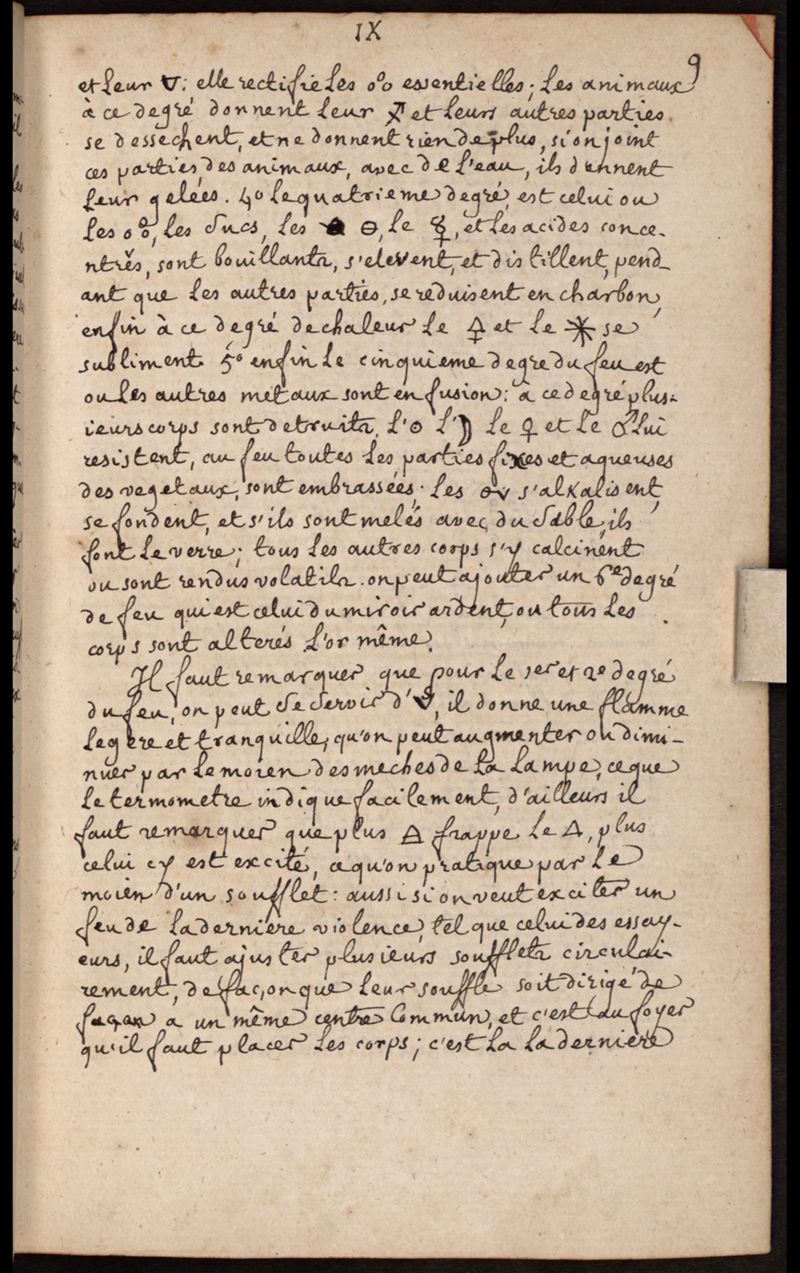 IX
9
et leur 🜄: elle rectifie les o°o essentielles; les animaux
à ce degré donnent leur et leurs autres parties
se dessechent, et ne donnent rien de plus, si on joint
ces parties des animaux, avec de l'eau, ils donnent
leur gelées. 4o le quatrieme degré, est celui ou
les o°o, les sucs, les ⊖, le, et les acides conce-
ntrés, sont bouillants, s'elevent, et distillent, pend-
ant que les autres parties, se reduisent en charbon
enfin à ce degré de chaleur le 🜍 et le ✶ se
subliment. 5o enfin le cinquieme degre du feu est
ou les autres metaux sont en fusion: à ce degré plus-
ieurs corps sont detruits, l'☉ l'☽ le ♀ et le ♂ lui
resistent, au feu toutes les parties fixes et aqueuses
des vegetaux, sont embrassées. les s'alkalisent
se fondent, et s'ils sont melés avec du sable, ils
font le verre; tous les autres corps s'y calcinent
ou sont rendus volatils. on peut ajouter un 6e degré
de feu qui est celui du miroir ardent, ou tous les
corps sont alterés l'or même.
Il faut remarquer que pour le 1er et 2e degré
du feu, on peut se servir d', il donne une flamme
legere et tranquille, qu'on peut augmenter ou dimi-
nuer par le moien des meches de la lampe, ce que
le termometre indique facilement, d'ailleurs il
faut remarquer que plus 🜁 frappe le 🜂, plus
celui cy est excité, ce qu'on pratique par le
moien d'un soufflet: aussi si on veut exciter un
feu de la derniere violence, tel que celui des essay-
eurs, il faut ajuster plusieurs soufflets circulai-
rement, de façon que leur souffle soit dirigé de
façon a un même centre commun, et c'est au foyer
qu'il faut placer les corps; c'est la la derniere